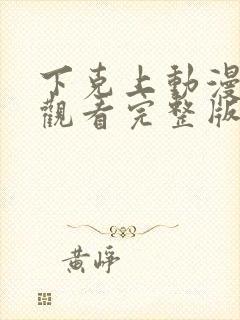 下克上動漫
觀看完整版
黃崢